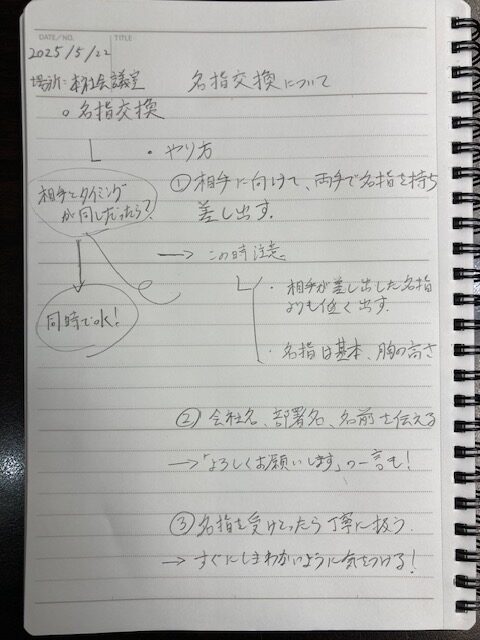 DATE/NO.
TITLE
2025/5/22
場所:本社会議室
名指交換について
○名指交換
・やり方
①相手に向けて、両手で名指を持ち
差し出す.
相手とタイミング
が同じだったら?
同時でok!
→この時注意。
・相手が差し出した名指
よりも低く出す.
・名指は基本、胸の高さ
②会社名、部署名、名前を伝える
→「よろしくお願いします」の一言も!
③名指を受けとったら丁寧に扱う.
→すぐにしまわないように気をつける!